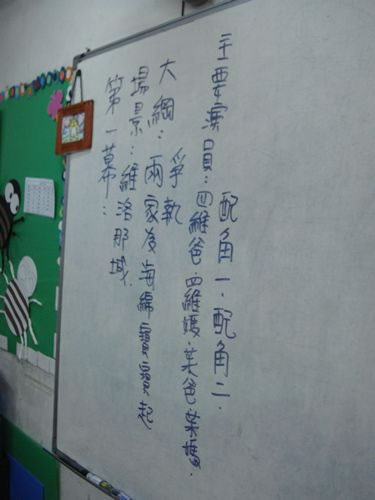 主要演員：四維爸.四維媽.茱爸茱媽.
配角一.配角二.
大綱：兩家為海綿寶寶起
爭執
場景：維洛那城.
第一幕：